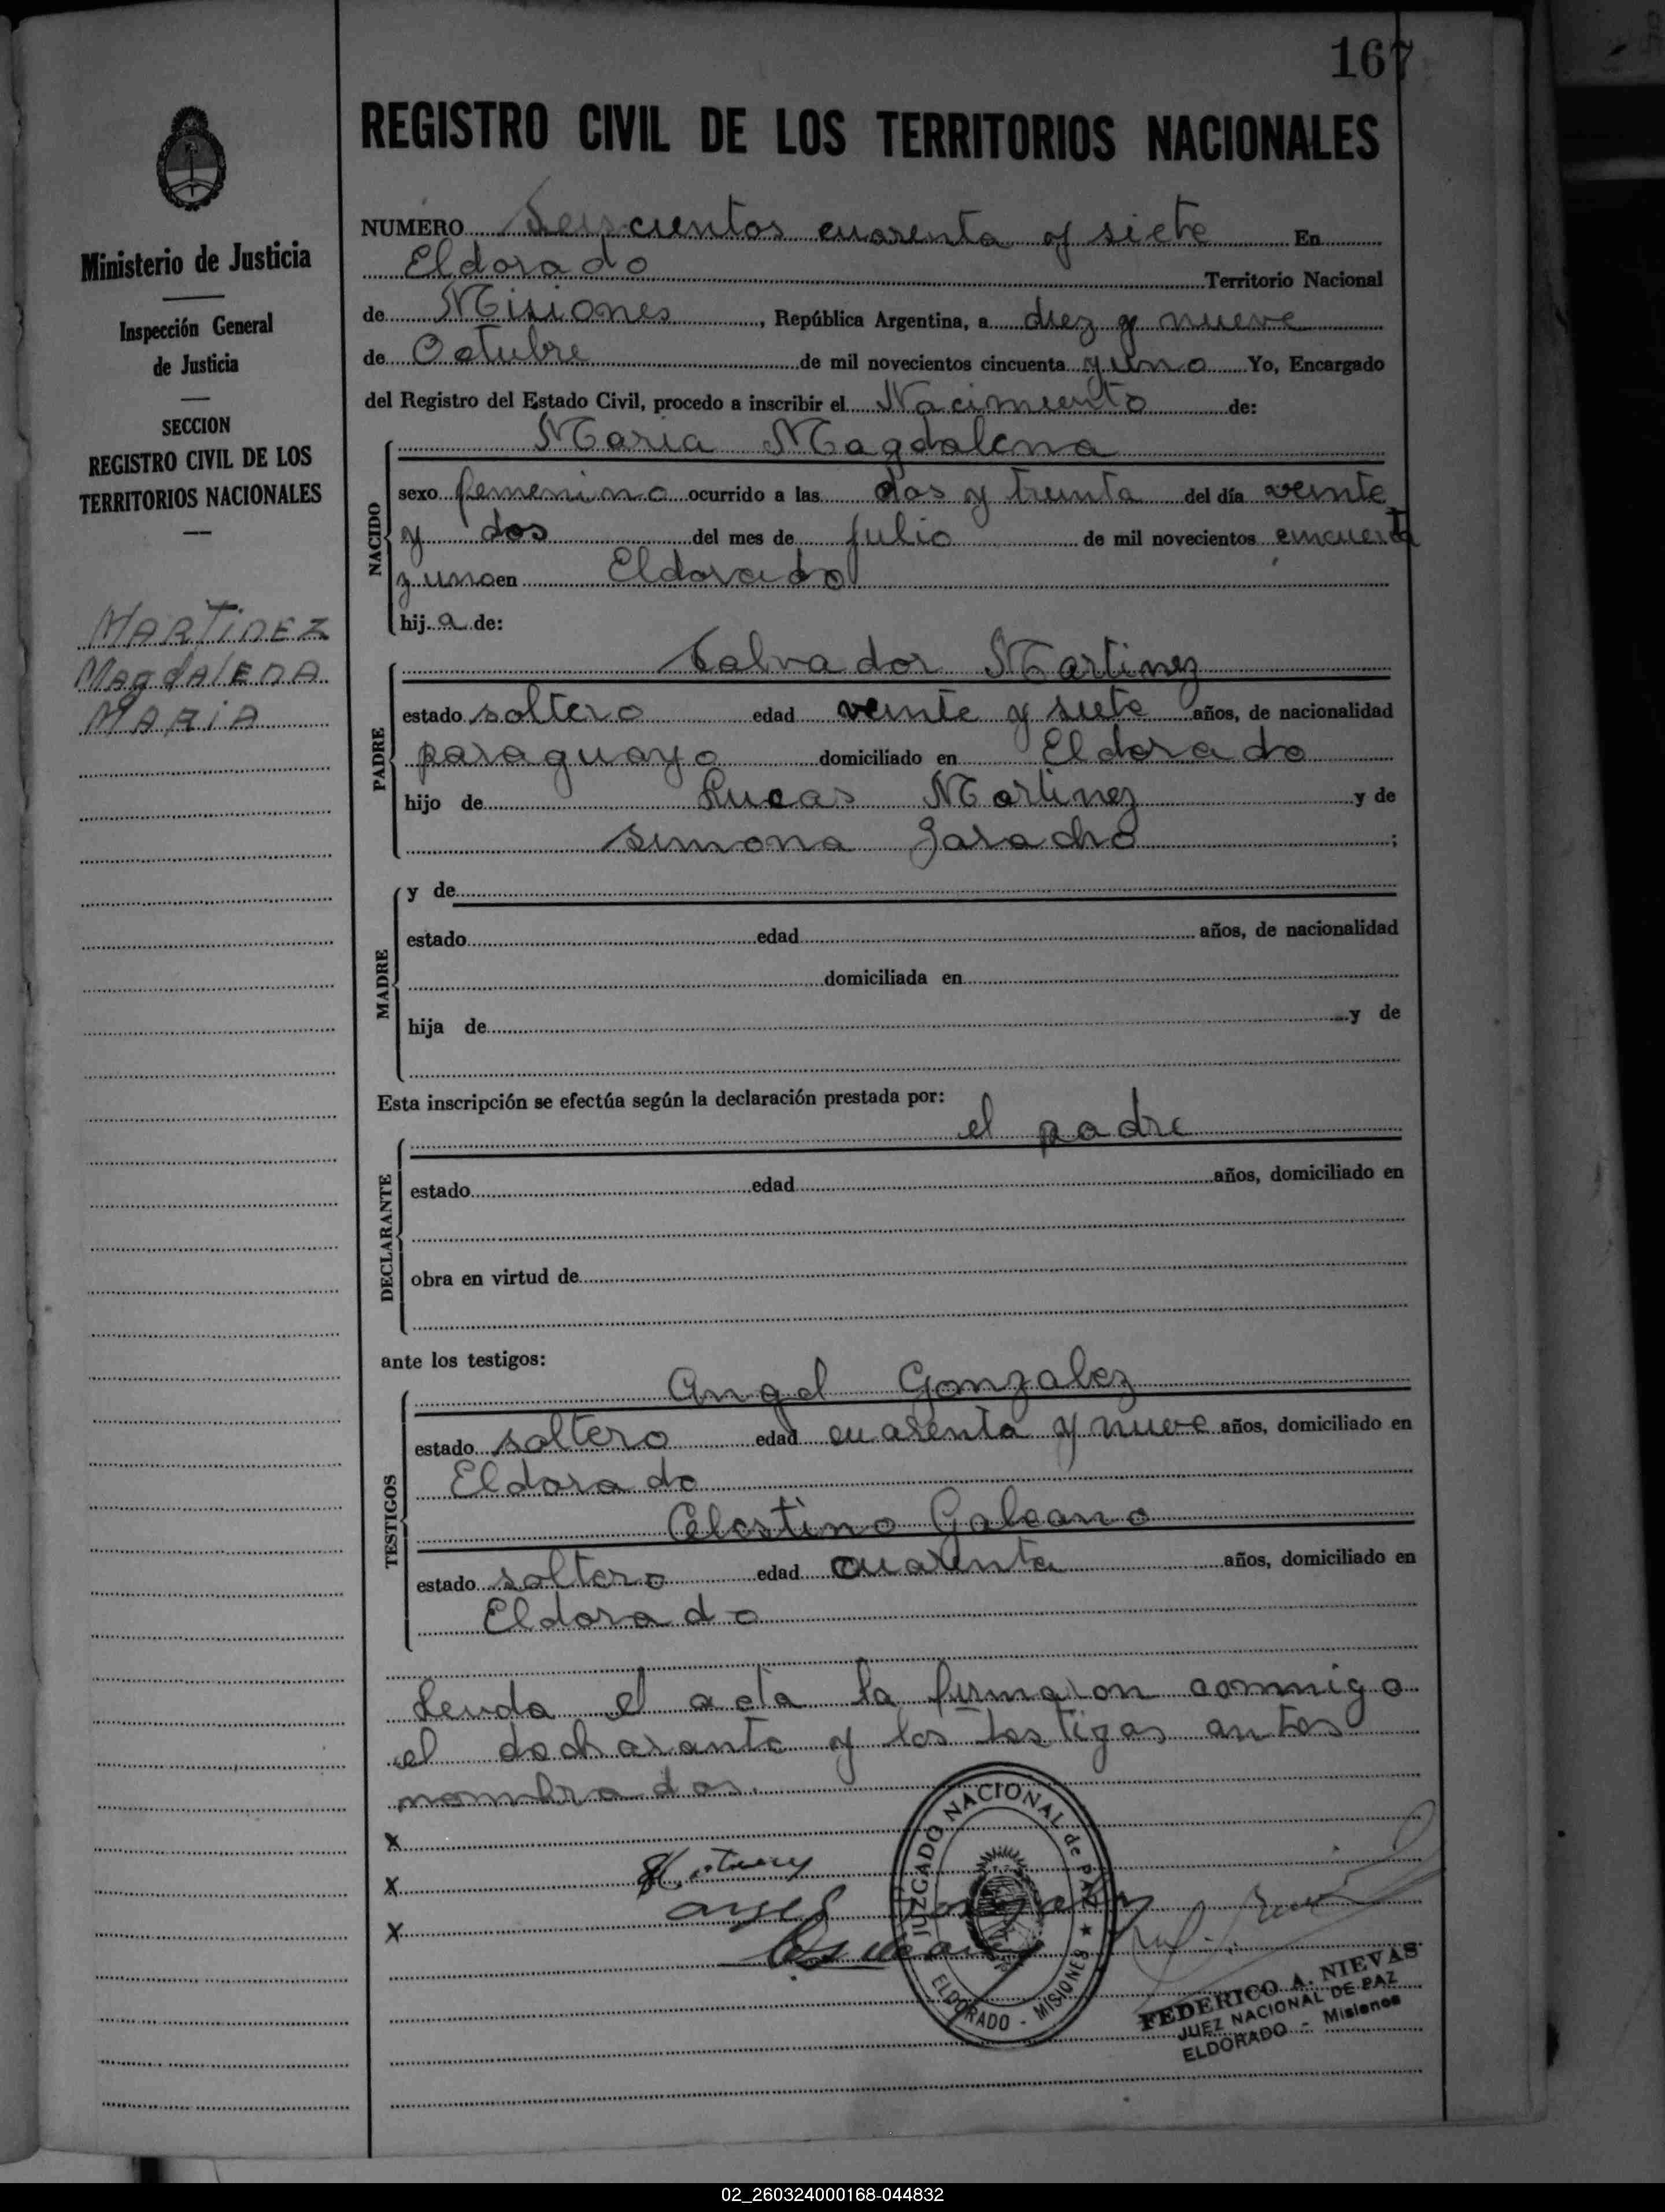 167
REGISTRO CIVIL DE LOS TERRITORIOS NACIONALES
Ministerio de Justicia
Inspección General
de Justicia
SECCION
REGISTRO CIVIL DE LOS
TERRITORIOS NACIONALES
MARTINEZ
MAGDALENA
MARIA
NUMERO Seiscientos cuarenta y siete En
Eldorado Territorio Nacional
de Misiones, República Argentina, a diez y nueve
de Octubre de mil novecientos cincuenta y uno Yo, Encargado
del Registro del Estado Civil, procedo a inscribir el Nacimiento de:
NACIDO
Maria Magdalena
sexo femenino ocurrido a las dos y treinta del día veinte
y dos del mes de julio de mil novecientos cincuenta
y uno en Eldorado
hija de:
PADRE
Salvador Martinez
estado soltero edad veinte y siete años, de nacionalidad
paraguayo domiciliado en Eldorado
hijo de Lucas Martinez y de
Simona Garacho;
MADRE
y de
estado edad años, de nacionalidad
domiciliada en
hija de y de
Esta inscripción se efectúa según la declaración prestada por:
el padre
DECLARANTE
estado edad años, domiciliado en
obra en virtud de
ante los testigos:
TESTIGOS
Angel Gonzalez
estado soltero edad cuarenta y nueve años, domiciliado en
Eldorado
Celestino Galeano
estado soltero edad cuarenta años, domiciliado en
Eldorado
Leida el acta la firmaron conmigo
el declarante y los testigos antes
nombrados.
x
x
x
JUZGADO NACIONAL de PAZ
ELDORADO - MISIONES
FEDERICO A. NIEVAS
JUEZ NACIONAL DE PAZ
ELDORADO - Misiones
02_260324000168-044832